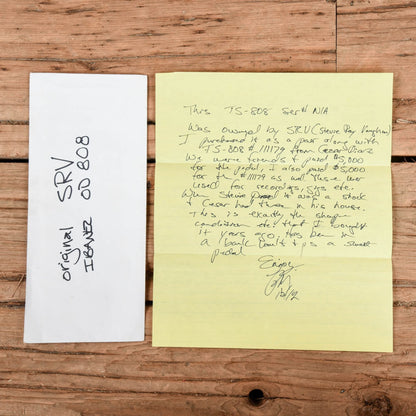 original SRV
IBANEZ OD 808
This TS-808 Ser# N/A
Was owned by SRV (Stevie Ray Vaughan)
I purchased it as a pair along with
TS-808 # 111179 from Cesar Diaz
We were friends & paid $5,000
for the pedal, I also paid $5,000
for the #111179 as well these were
used for recordings, gigs etc.
When Stevie it was a stock
& Cesar had them in his house.
This is exactly the shape
condition etc. that I bought
it years ago, Has been in
a bank vault its a small
pedal
Enjoy